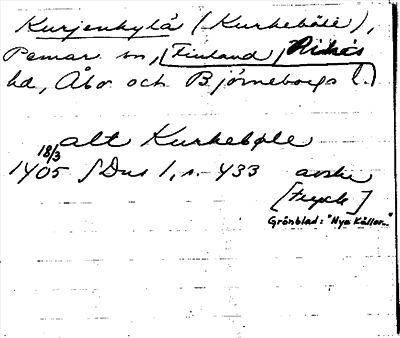 Kurjenkylä (Kurkeböle),
Pemar sn, (Finland) Pikis
hd, Åbo och Björneborgs l.)
alt Kurkebøle
18/3
1405 SDns 1, s. 433 avskr
[tryck]
Grönblad: "Nya Källor..."